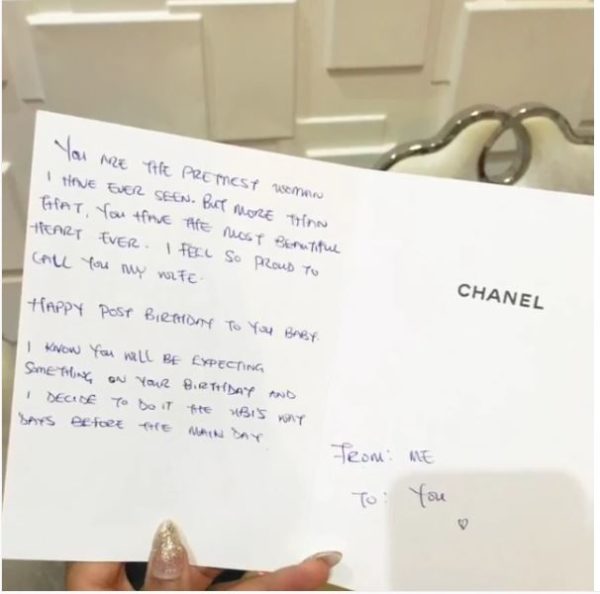 You ARE THE PRETTIEST WOMAN
I HAVE EVER SEEN. BUT MORE THAN
THAT, You HAVE THE MOST BEAUTIFUL
HEART EVER. I FEEL SO PROUD TO
CALL YOU MY WIFE.
HAPPY POST BIRTHDAY TO YOU BABY.
I KNOW YOU WILL BE EXPECTING
SOMETHING ON YOUR BIRTHDAY AND
I DECIDE TO DO IT THE WAY
DAYS BEFORE THE MAIN DAY.
CHANEL
FROM: ME
TO: You